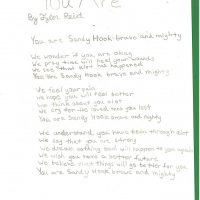 You Are
By Kylen Reist
You are Sandy Hook brave and mighty
We wonder if you are okay
We pray time will heal your wounds
We see that it has happened
You are Sandy Hook brave and mighty
We feel your pain
We hope you will feel better
We think about you a lot
We cry for the loved ones lost
You are Sandy Hook brave and mighty
We understand you have been through alot
We say that you are strong
We dream nothing bad will happen to you again
We wish you have a better future
We believe that things will go better for you
You are Sandy Hook brave and mighty